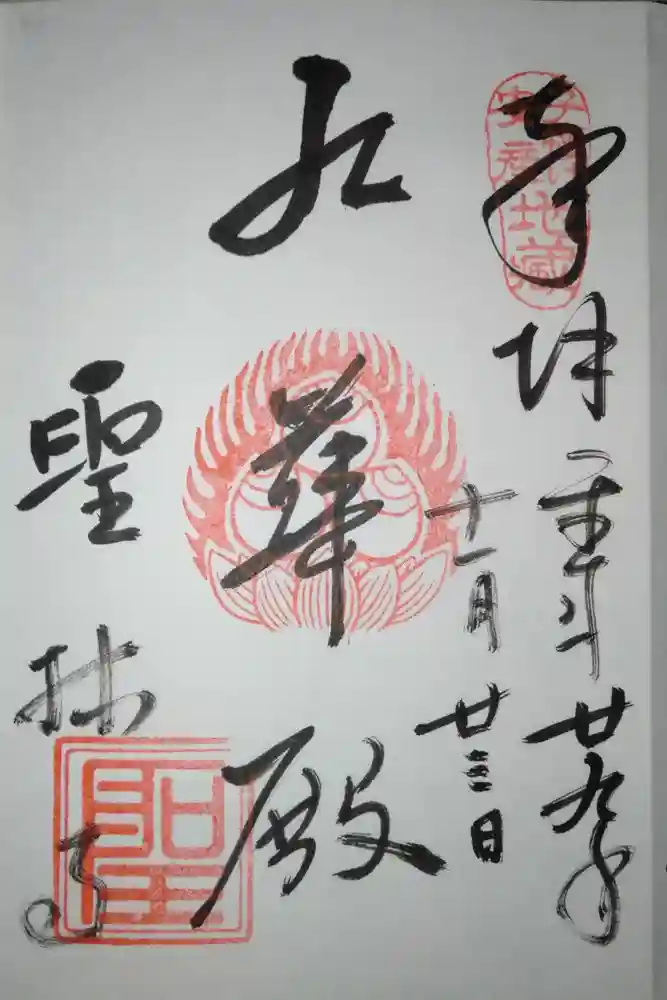 子授
安産
地蔵
奉拝
平成廿九年
十一月廿三日
九華殿
聖林寺
聖